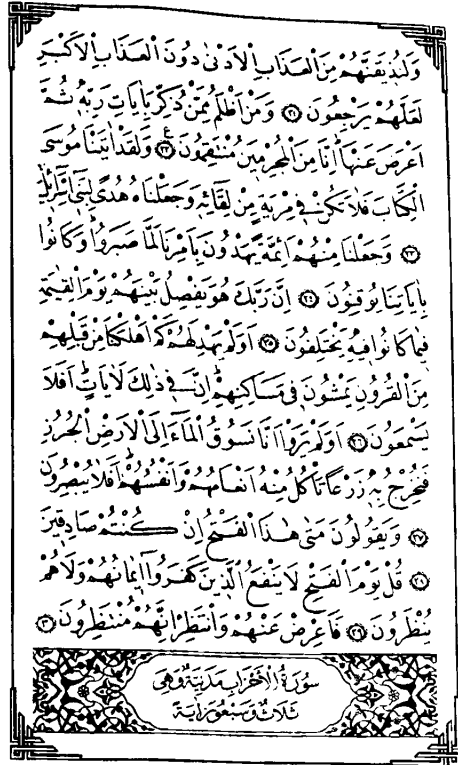 وَلَنُذِيقَنَّهُمْ مِنَ الْعَذَابِ الْاَدْنٰى دُونَ الْعَذَابِ الْاَكْبَرِ
لَعَلَّهُمْ يَرْجِعُونَ ﴿٢١﴾ وَمَنْ اَظْلَمُ مِمَّنْ ذُكِّرَ بِاٰيَاتِ رَبِّه۪ ثُمَّ
اَعْرَضَ عَنْهَاۜ اِنَّا مِنَ الْمُجْرِم۪ينَ مُنْتَقِمُونَ۟ ﴿٢٢﴾ وَلَقَدْ اٰتَيْنَا مُوسَى
الْكِتَابَ فَلَا تَكُنْ ف۪ي مِرْيَةٍ مِنْ لِقَٓائِه۪ وَجَعَلْنَاهُ هُدًى لِبَن۪ٓي اِسْرَٓائ۪لَۚ
﴿٢٣﴾ وَجَعَلْنَا مِنْهُمْ اَئِمَّةً يَهْدُونَ بِاَمْرِنَا لَمَّا صَبَرُواۜ وَكَانُوا
بِاٰيَاتِنَا يُوقِنُونَ ﴿٢٤﴾ اِنَّ رَبَّكَ هُوَ يَفْصِلُ بَيْنَهُمْ يَوْمَ الْقِيٰمَةِ
ف۪يمَا كَانُوا ف۪يهِ يَخْتَلِفُونَ ﴿٢٥﴾ اَوَلَمْ يَهْدِ لَهُمْ كَمْ اَهْلَكْنَا مِنْ قَبْلِهِمْ
مِنَ الْقُرُونِ يَمْشُونَ ف۪ي مَسَاكِنِهِمْۜ اِنَّ ف۪ي ذٰلِكَ لَاٰيَاتٍۜ اَفَلَا
يَسْمَعُونَ ﴿٢٦﴾ اَوَلَمْ يَرَوْا اَنَّا نَسُوقُ الْمَٓاءَ اِلَى الْاَرْضِ الْجُرُزِ
فَنُخْرِجُ بِه۪ زَرْعًا تَأْكُلُ مِنْهُ اَنْعَامُهُمْ وَاَنْفُسُهُمْۜ اَفَلَا يُبْصِرُونَ
﴿٢٧﴾ وَيَقُولُونَ مَتٰى هٰذَا الْفَتْحُ اِنْ كُنْتُمْ صَادِق۪ينَ
﴿٢٨﴾ قُلْ يَوْمَ الْفَتْحِ لَا يَنْفَعُ الَّذ۪ينَ كَفَرُٓوا ا۪يمَانُهُمْ وَلَا هُمْ
يُنْظَرُونَ ﴿٢٩﴾ فَاَعْرِضْ عَنْهُمْ وَانْتَظِرْ اِنَّهُمْ مُنْتَظِرُونَ ﴿٣٠﴾
سُورَةُ الْاَحْزَابِ مَدَنِيَّةٌ وَهِيَ
ثَلَاثٌ وَسَبْعُونَ اٰيَةً